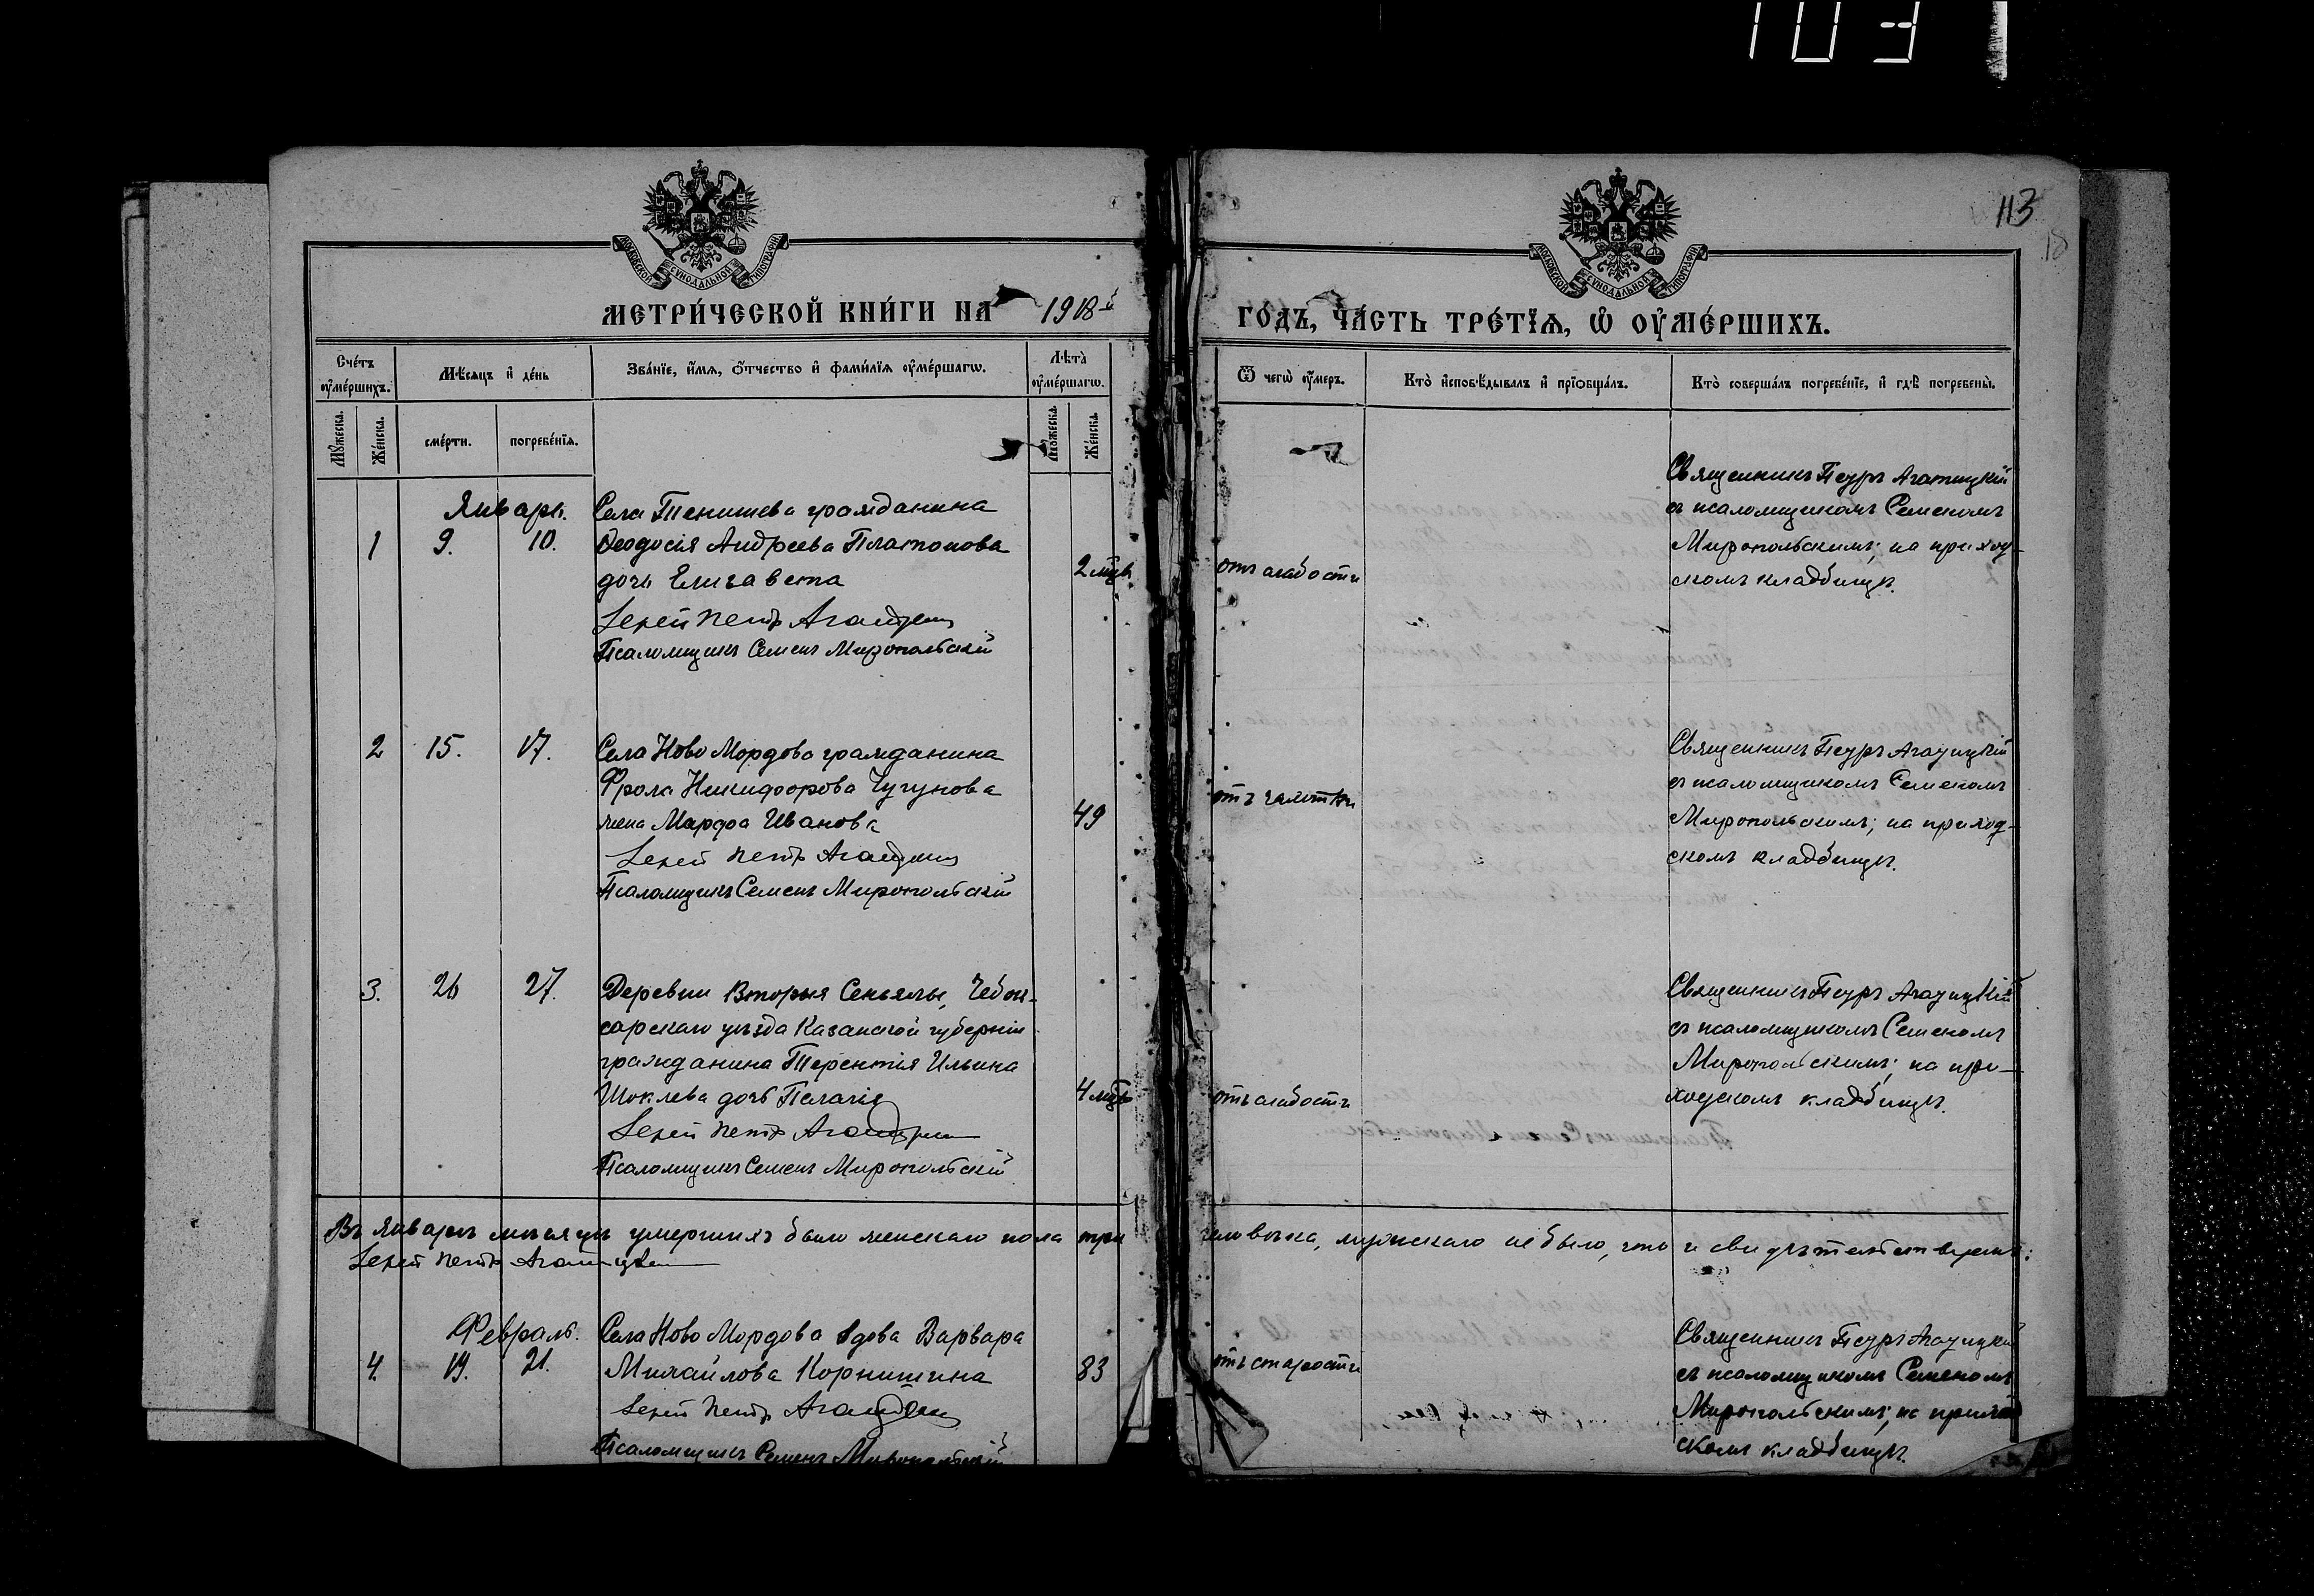 1031
113
18
МОСКОВСКОЙ СѴНОДАЛЬНОЙ ТИПОГРАФІИ
МОСКОВСКОЙ СѴНОДАЛЬНОЙ ТИПОГРАФІИ
МЕТРИ́ЧЕСКОЙ КНИ́ГИ НА 1918й
ГО́ДЪ, ЧА́СТЬ ТРЕ́ТІѦ, Ѡ҆ ОУ҆МЕ́РШИХЪ.
Сче́тъ оу҆ме́ршихъ.
Мѣ́сяцъ и҆ де́нь
Зва́нїе, и҆́мѧ, ѻ҆́тчество и҆ фами́лїѧ оу҆ме́ршагѡ.
Лѣ̀та оу҆ме́ршагѡ.
Ѿ чегѡ̀ оу҆́меръ.
Кто̀ и҆сповѣ́дывалъ и҆ прїѡбща́лъ.
Кто̀ соверша́лъ погребе́нїе, и҆ гдѣ̀ погребены̀.
Мꙋ́жеска.
Же́нска.
сме́рти.
погребе́нїѧ.
Мꙋ́жеска.
Же́нска.
Январь.
1
9.
10.
Села Тенишева гражданина
Ѳеодосія Андреева Платонова
дочь Елизавета
Іерей Петръ Агатицкій
Псаломщикъ Семенъ Миропольскій
2 мѣс.
отъ слабости
Священникъ Петръ Агатицкій
съ псаломщикомъ Семеномъ
Миропольскимъ; на приход-
скомъ кладбищѣ.
2
15.
17.
Села Ново Мордова гражданина
Фрола Никифорова Чугунова
жена Марфа Иванова
Іерей Петръ Агатицкій
Псаломщикъ Семенъ Миропольскій
49
отъ чахотки
Священникъ Петръ Агатицкій
съ псаломщикомъ Семеномъ
Миропольскимъ; на приход-
скомъ кладбищѣ.
3.
26
27.
Деревни Вторыя Сеньялы, Чебок-
сарскаго уѣзда Казанской губерніи
гражданина Терентія Ильина
Шоклева дочь Пелагія
Іерей Петръ Агатицкій
Псаломщикъ Семенъ Миропольскій
4 мѣс.
отъ слабости
Священникъ Петръ Агатицкій
съ псаломщикомъ Семеномъ
Миропольскимъ; на при-
ходскомъ кладбищѣ.
Въ январѣ мѣсяцѣ умершихъ было женскаго пола три человѣка, мужскаго не было, что и свидѣтельствуемъ:
Іерей Петръ Агатицкій
Февраль.
4.
19.
21.
Села Ново Мордова вдова Варвара
Михайлова Корнишина
Іерей Петръ Агатицкій
Псаломщикъ Семенъ Миропольскій
83
отъ старости
Священникъ Петръ Агатицкій
съ псаломщикомъ Семеномъ
Миропольскимъ; на приход
скомъ кладбищѣ.